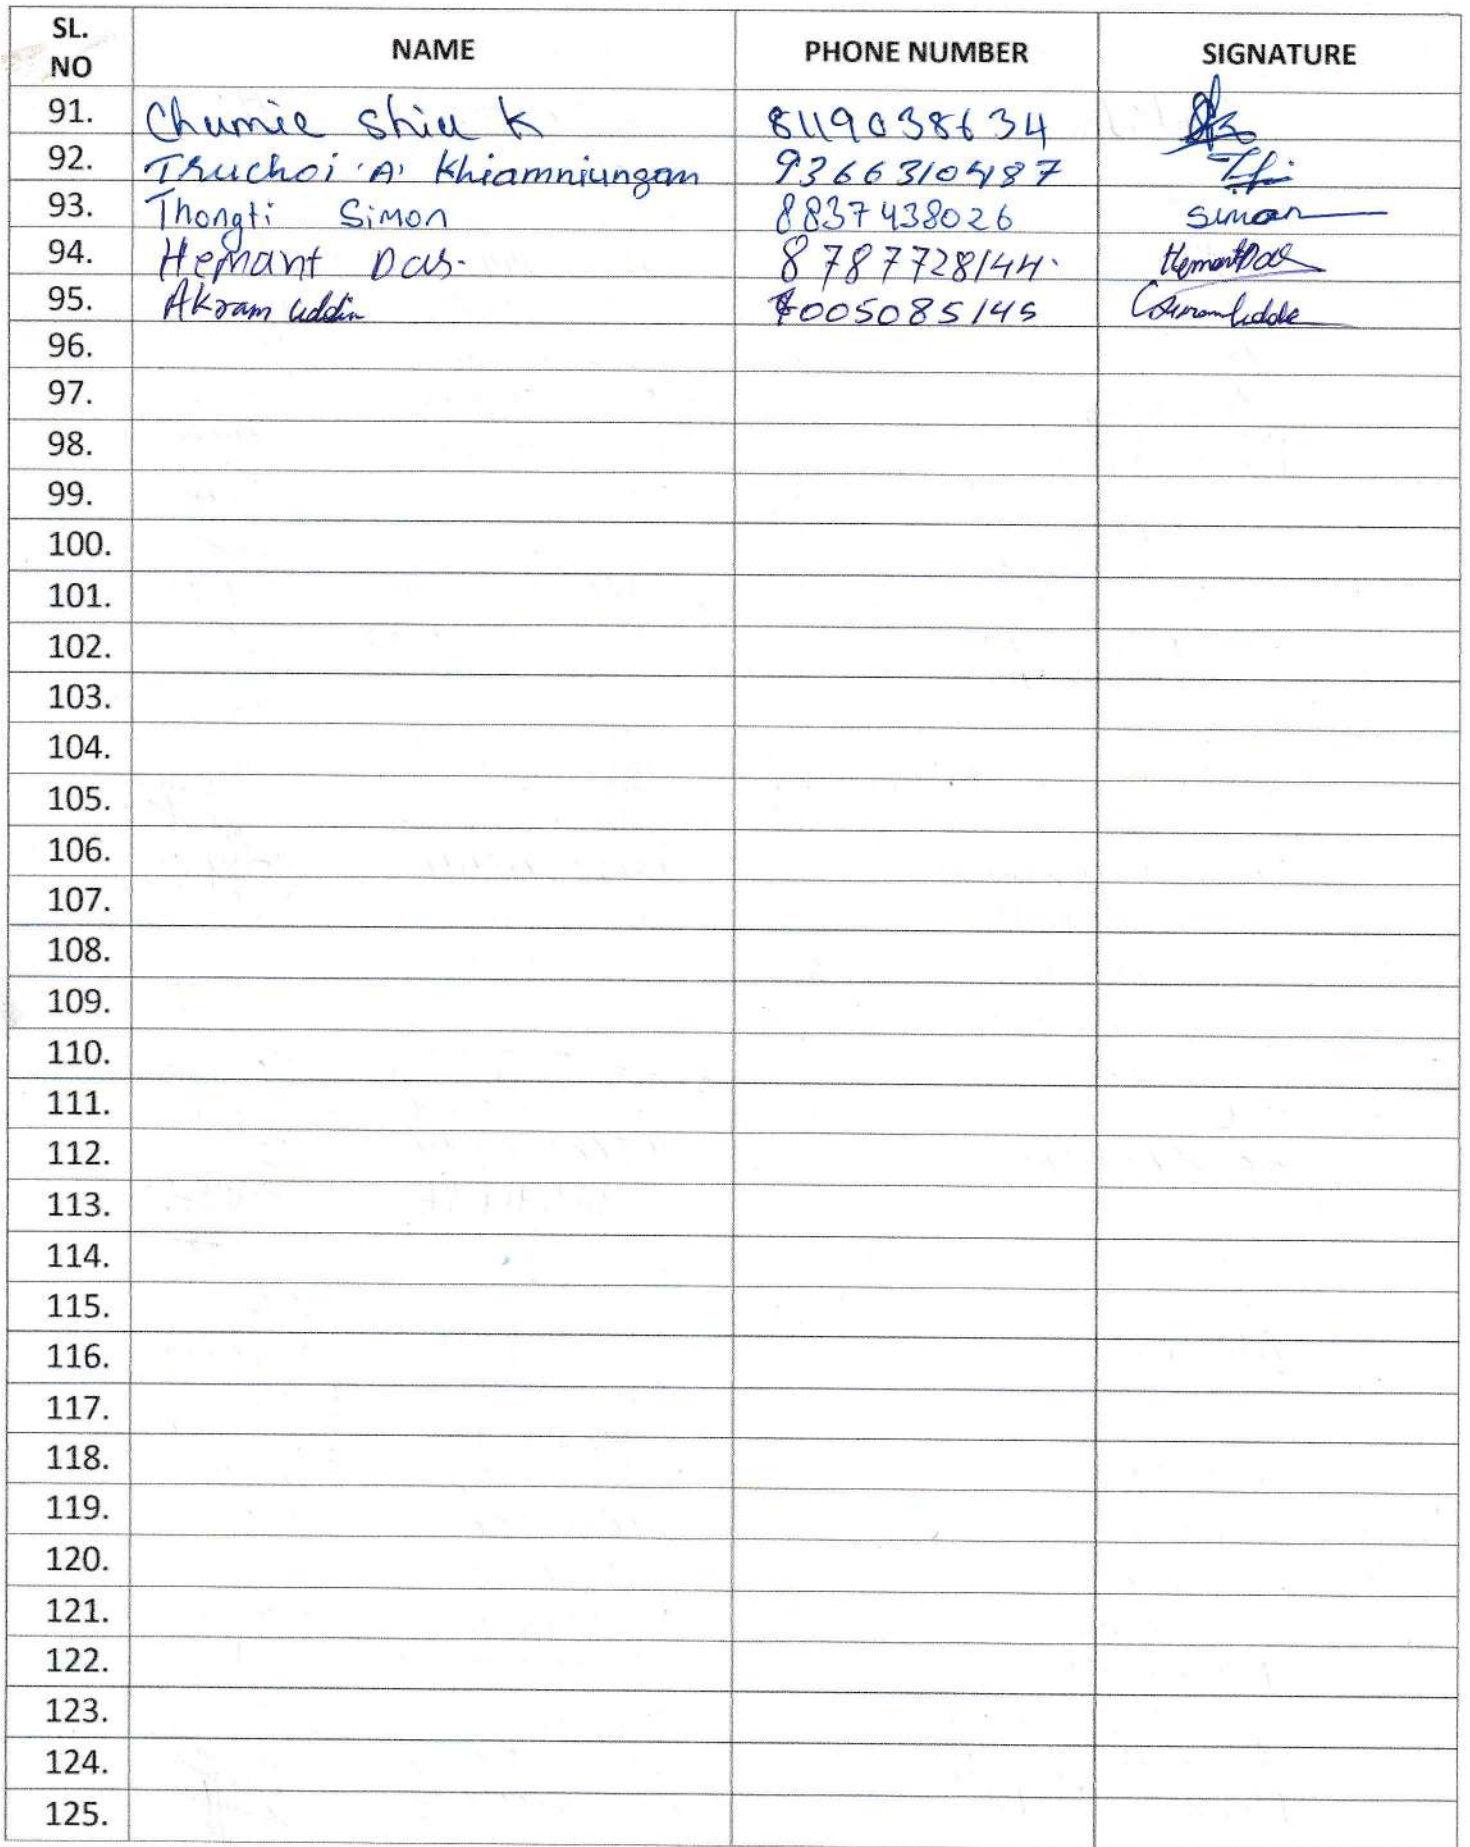 SL. NO NAME PHONE NUMBER SIGNATURE
91. Chumie Shiu K 8119038634
92. Thuchoi 'A' Khiamniungan 9366310487
93. Thongti Simon 8837438026 Simon
94. Hemant Das. 8787728144. Hemant Das
95. Akram Uddin 7005085145
96.
97.
98.
99.
100.
101.
102.
103.
104.
105.
106.
107.
108.
109.
110.
111.
112.
113.
114.
115.
116.
117.
118.
119.
120.
121.
122.
123.
124.
125.